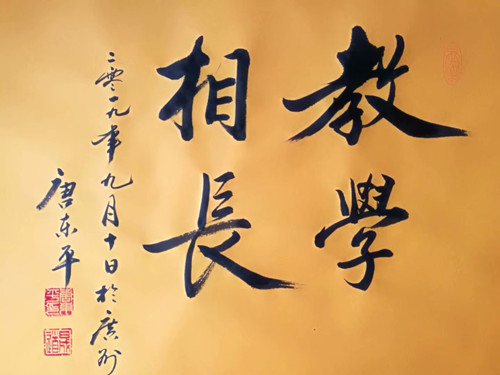 教學
相長
二零一九年九月十日於廣州
唐东平